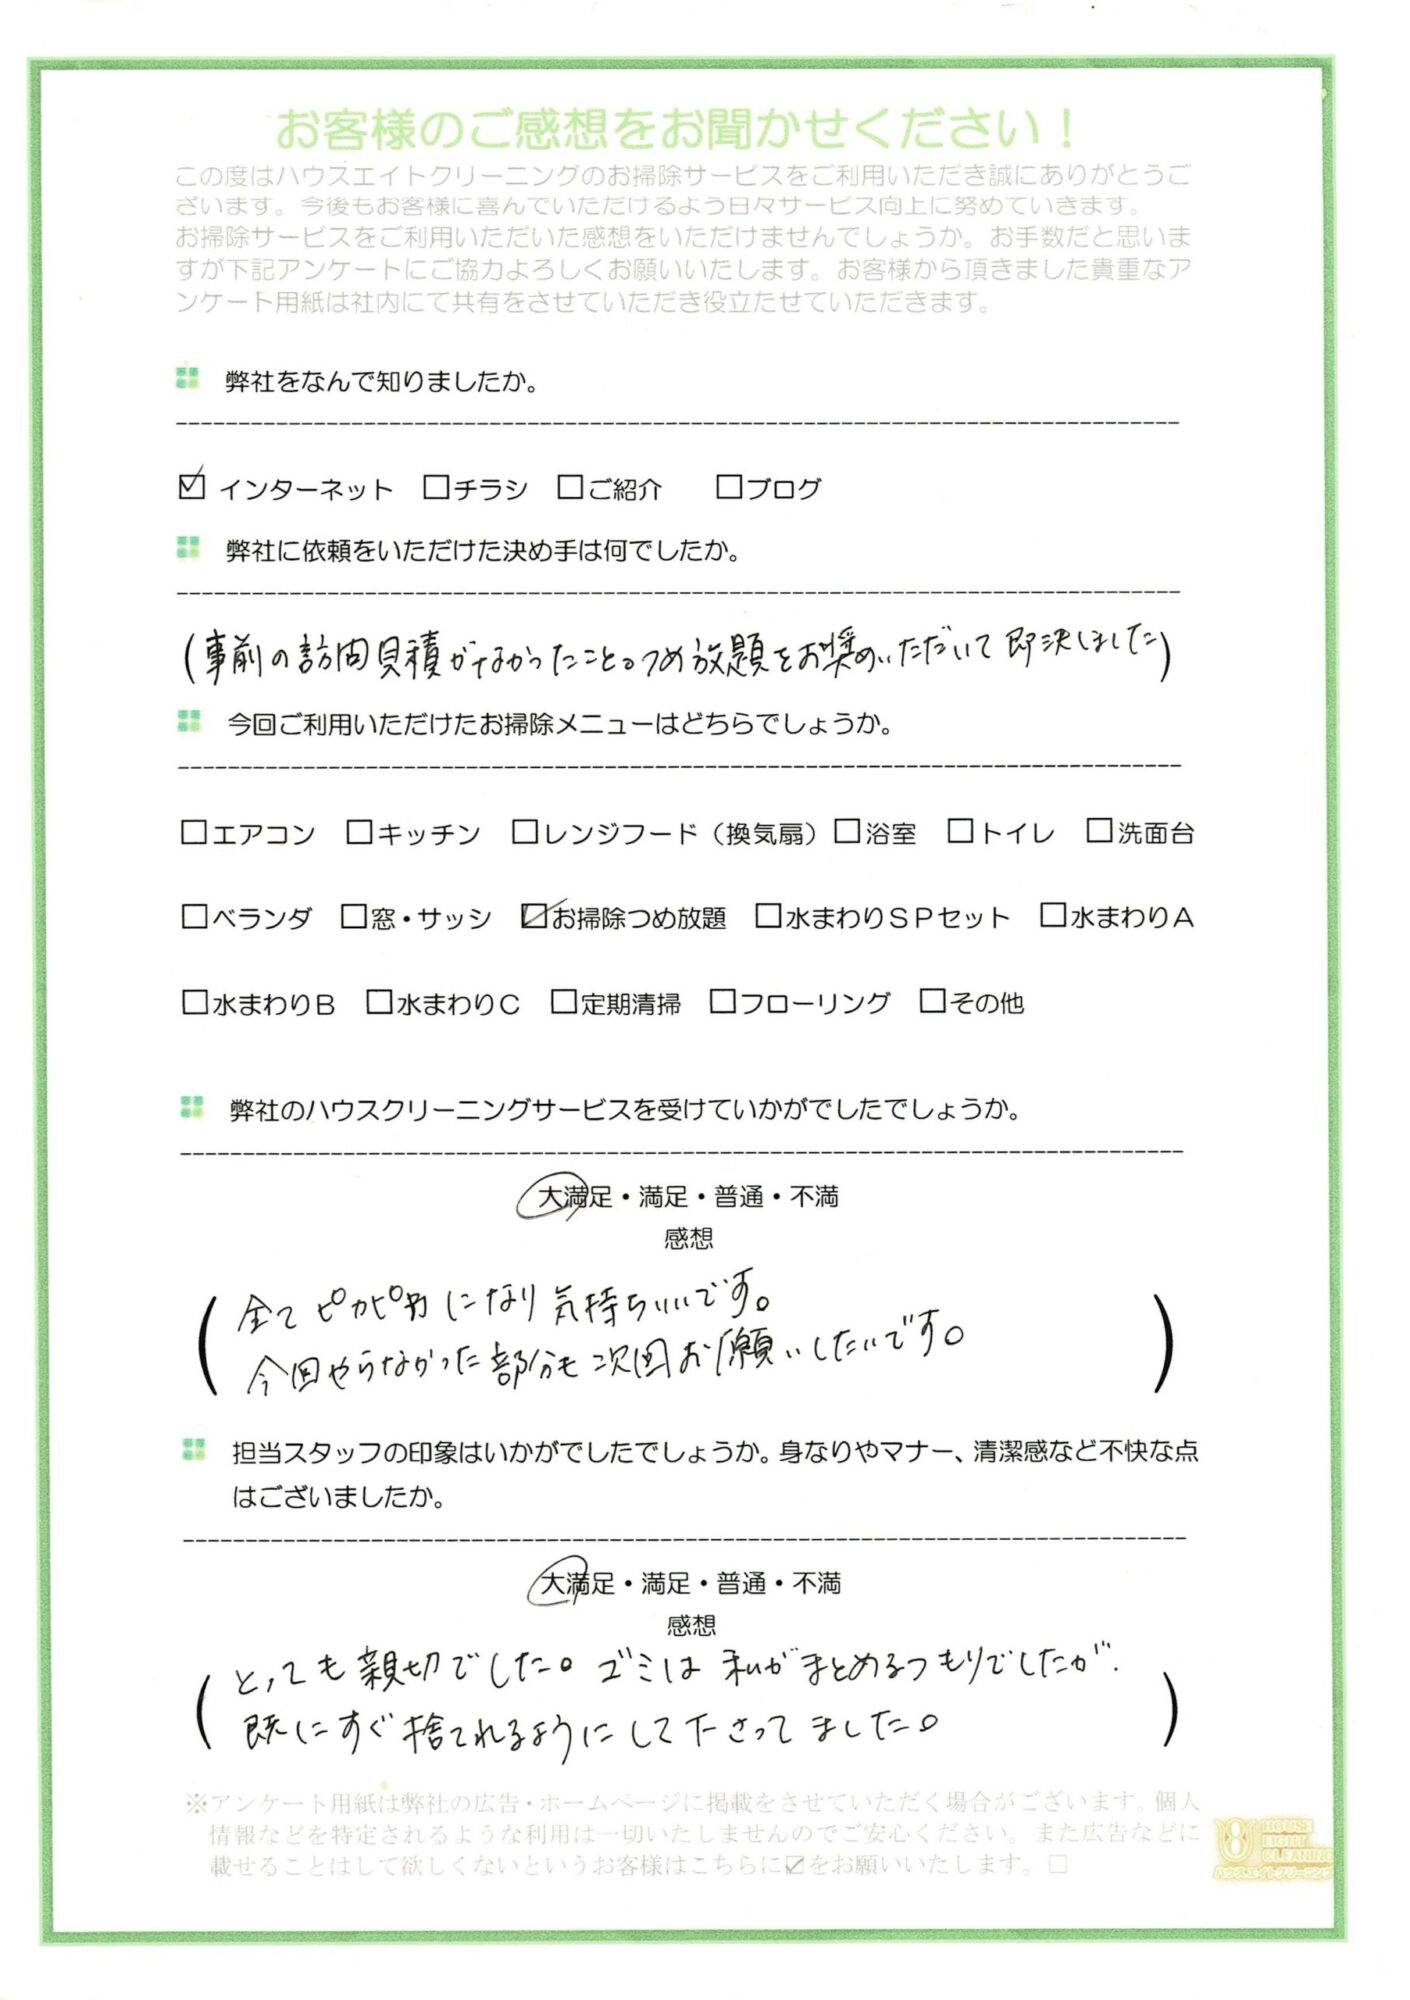 お客様のご感想をお聞かせください！
この度はハウスエイトクリーニングのお掃除サービスをご利用いただき誠にありがとうご
ざいます。今後もお客様に喜んでいただけるよう日々サービス向上に努めていきます。
お掃除サービスをご利用いただいた感想をいただけませんでしょうか。お手数だと思いま
すが下記アンケートにご協力よろしくお願いいたします。お客様から頂きました貴重なア
ンケート用紙は社内にて共有をさせていただき役立たせていただきます。
弊社をなんで知りましたか。
☑ インターネット □チラシ □ご紹介 □ブログ
弊社に依頼をいただけた決め手は何でしたか。
(事前の訪問見積がなかったこと。つめ放題をお奨めいただいて即決しました)
今回ご利用いただけたお掃除メニューはどちらでしょうか。
□エアコン □キッチン □レンジフード（換気扇）□浴室 □トイレ □洗面台
□ベランダ □窓・サッシ ☑お掃除つめ放題 □水まわりＳＰセット □水まわりＡ
□水まわりＢ □水まわりＣ □定期清掃 □フローリング □その他
弊社のハウスクリーニングサービスを受けていかがでしたでしょうか。
大満足・満足・普通・不満
感想
(全てピカピカになり気持ちいいです。
今回やらなかった部分も次回お願いしたいです。)
担当スタッフの印象はいかがでしたでしょうか。身なりやマナー、清潔感など不快な点
はございましたか。
大満足・満足・普通・不満
感想
(とっても親切でした。ゴミは私がまとめるつもりでしたが、
既にすぐ捨てれるようにして下さってました。)
※アンケート用紙は弊社の広告・ホームページに掲載をさせていただく場合がございます。個人
情報などを特定されるような利用は一切いたしませんのでご安心ください。また広告などに
載せることはして欲しくないというお客様はこちらに☑をお願いいたします。□
8 HOUSE
EIGHT
CLEANING
ハウスエイトクリーニング